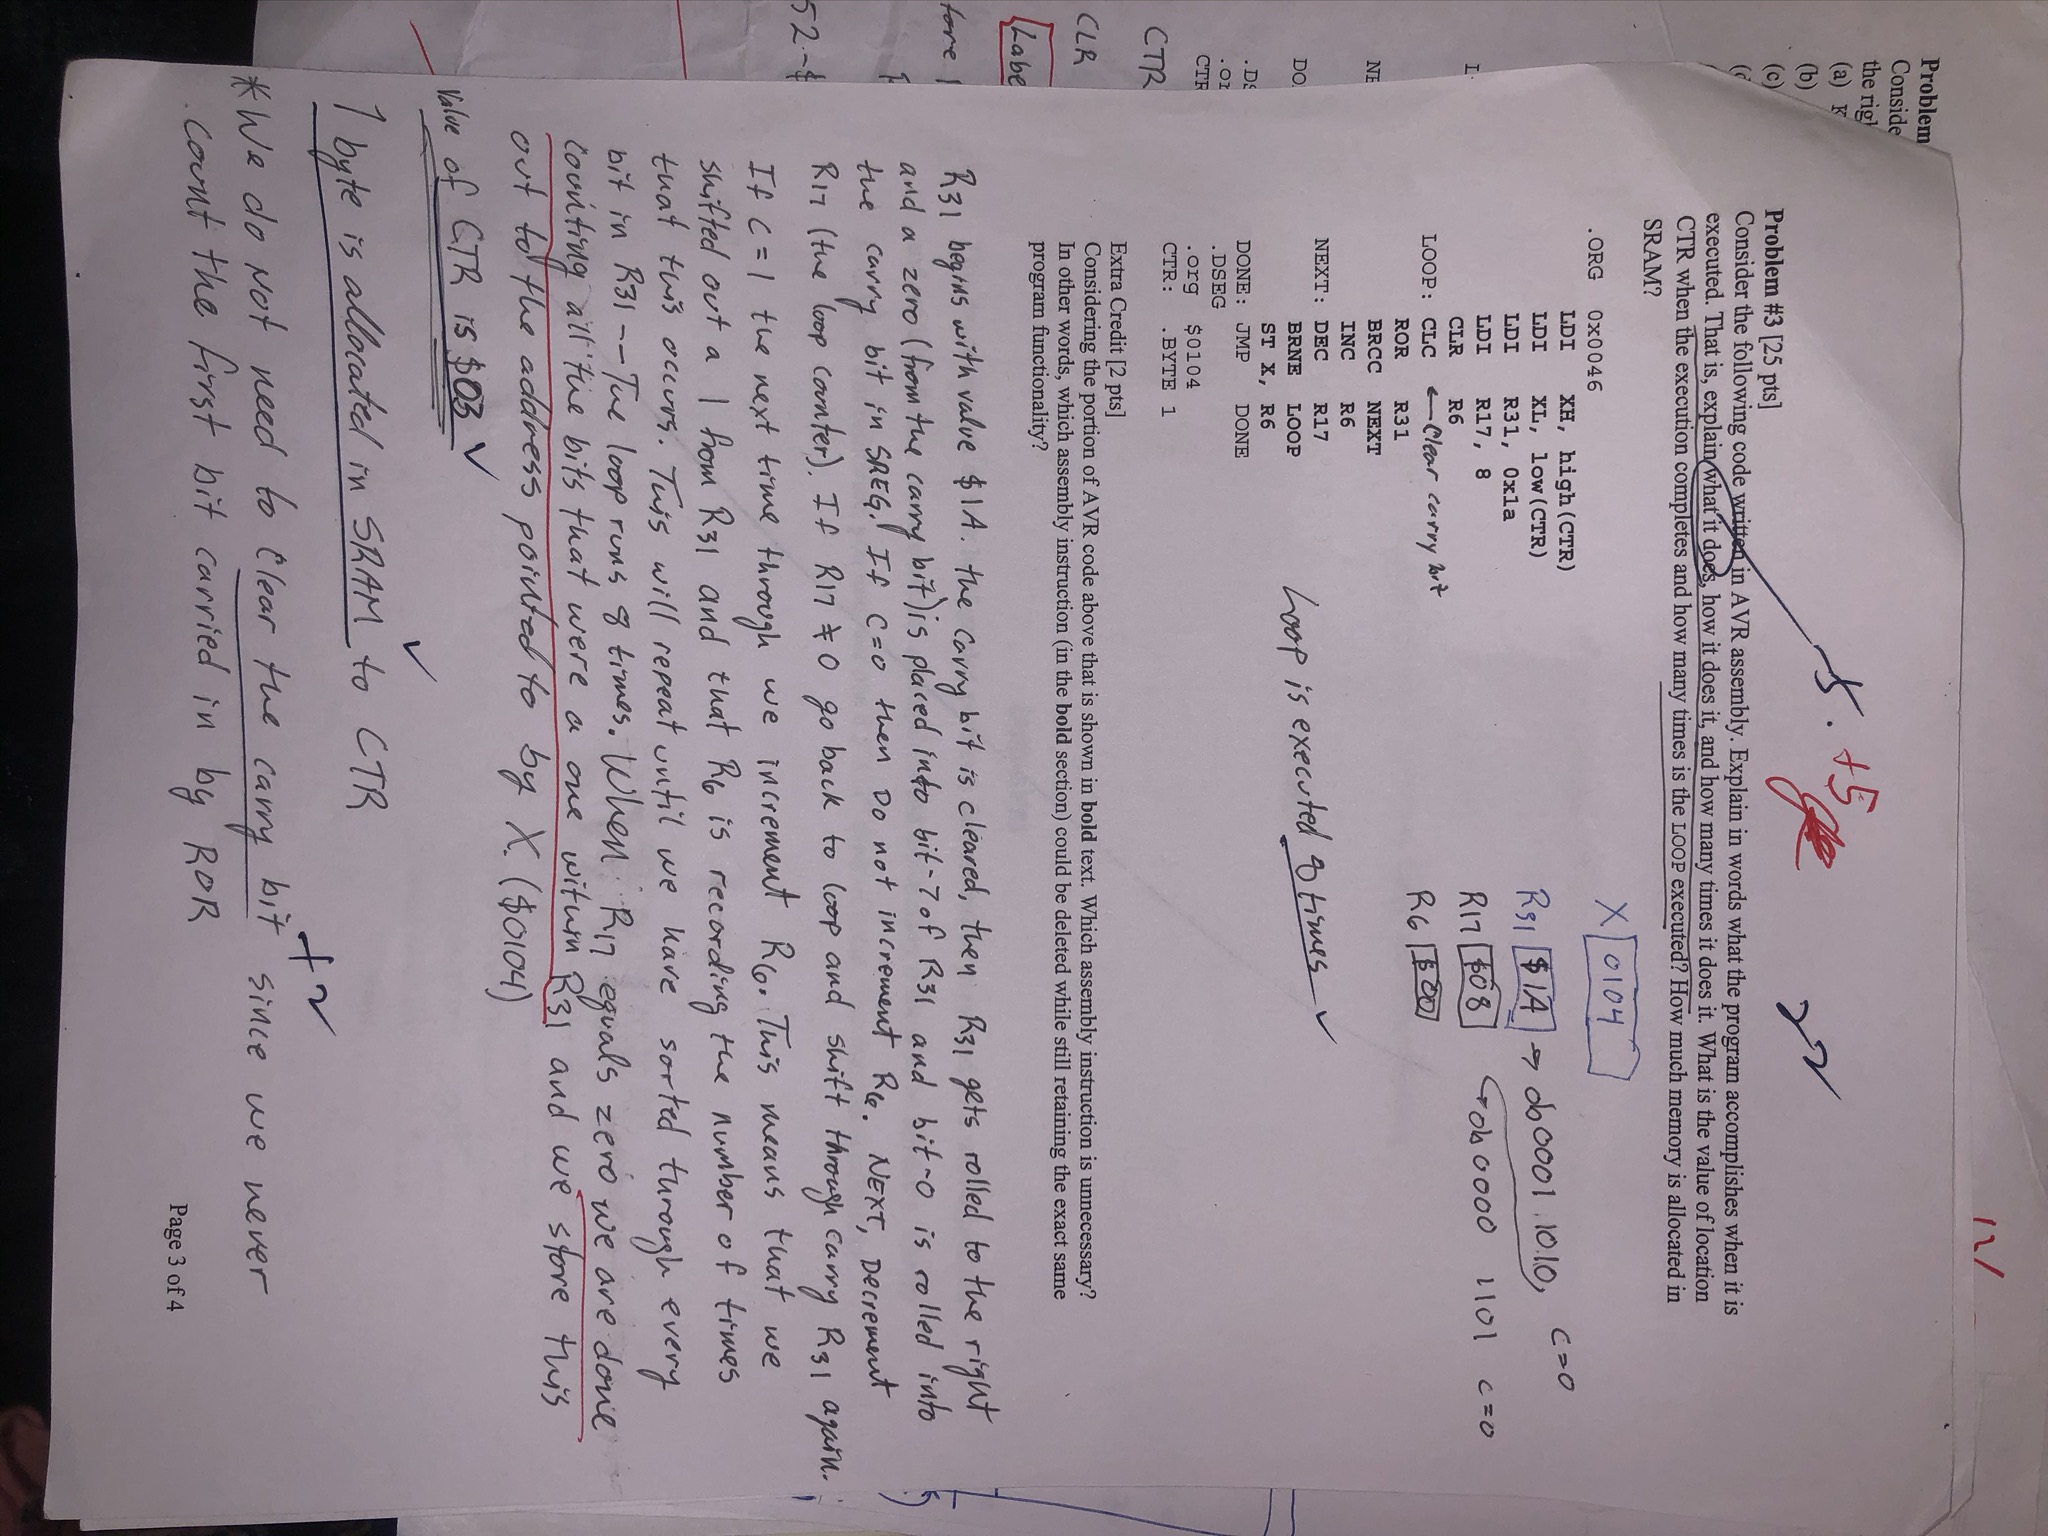 Problem
Conside
the righ
(a) K
(b)
(c)
CTR
CLR
Labe
tore
52-$
DO
.DS
.or
CTR
12/
Problem #3 [25 pts]
-5. +5
22
Consider the following code written in AVR assembly. Explain in words what the program accomplishes when it is
executed. That is, explain what it does, how it does it, and how many times it does it. What is the value of location
CTR when the execution completes and how many times is the LOOP executed? How much memory is allocated in
SRAM?
.ORG 0x0046
LDI XH, high(CTR)
LDI XL, low(CTR)
LDI R31, 0x1a
LDI R17, 8
CLR R6
LOOP: CLC ← Clear carry bit
ROR R31
BRCC NEXT
INC R6
NEXT: DEC R17
BRNE LOOP
ST X, R6
DONE: JMP DONE
.DSEG
.org $0104
CTR: .BYTE 1
X 0104
R31 $1A → 0b0001 1010, C=0
R17 $08 0b0000 1101 C=0
R6 $00
Loop is executed 8 times ✓
Extra Credit [2 pts]
Considering the portion of AVR code above that is shown in bold text. Which assembly instruction is unnecessary?
In other words, which assembly instruction (in the bold section) could be deleted while still retaining the exact same
program functionality?
R31 begins with value $1A. the carry bit is cleared, then R31 gets rolled to the right
and a zero (from the carry bit) is placed into bit-7 of R31 and bit-0 is rolled into
the carry bit in SREG. If C=0 then Do not increment R6. NEXT, Decrement
R17 (the loop counter). If R17 ≠ 0 go back to loop and shift through carry R31 again.
If C=1 the next time through we increment R6. This means that we
shifted out a 1 from R31 and that R6 is recording the number of times
that this occurs. This will repeat until we have sorted through every
bit in R31 -- The loop runs 8 times. When R17 equals zero we are done
counting all the bits that were a one within R31 and we store this
out to the address pointed to by X. ($0104)
Value of CTR is $03 ✓
1 byte is allocated in SRAM to CTR ✓
+2
*We do not need to clear the carry bit since we never
count the first bit carried in by ROR
Page 3 of 4